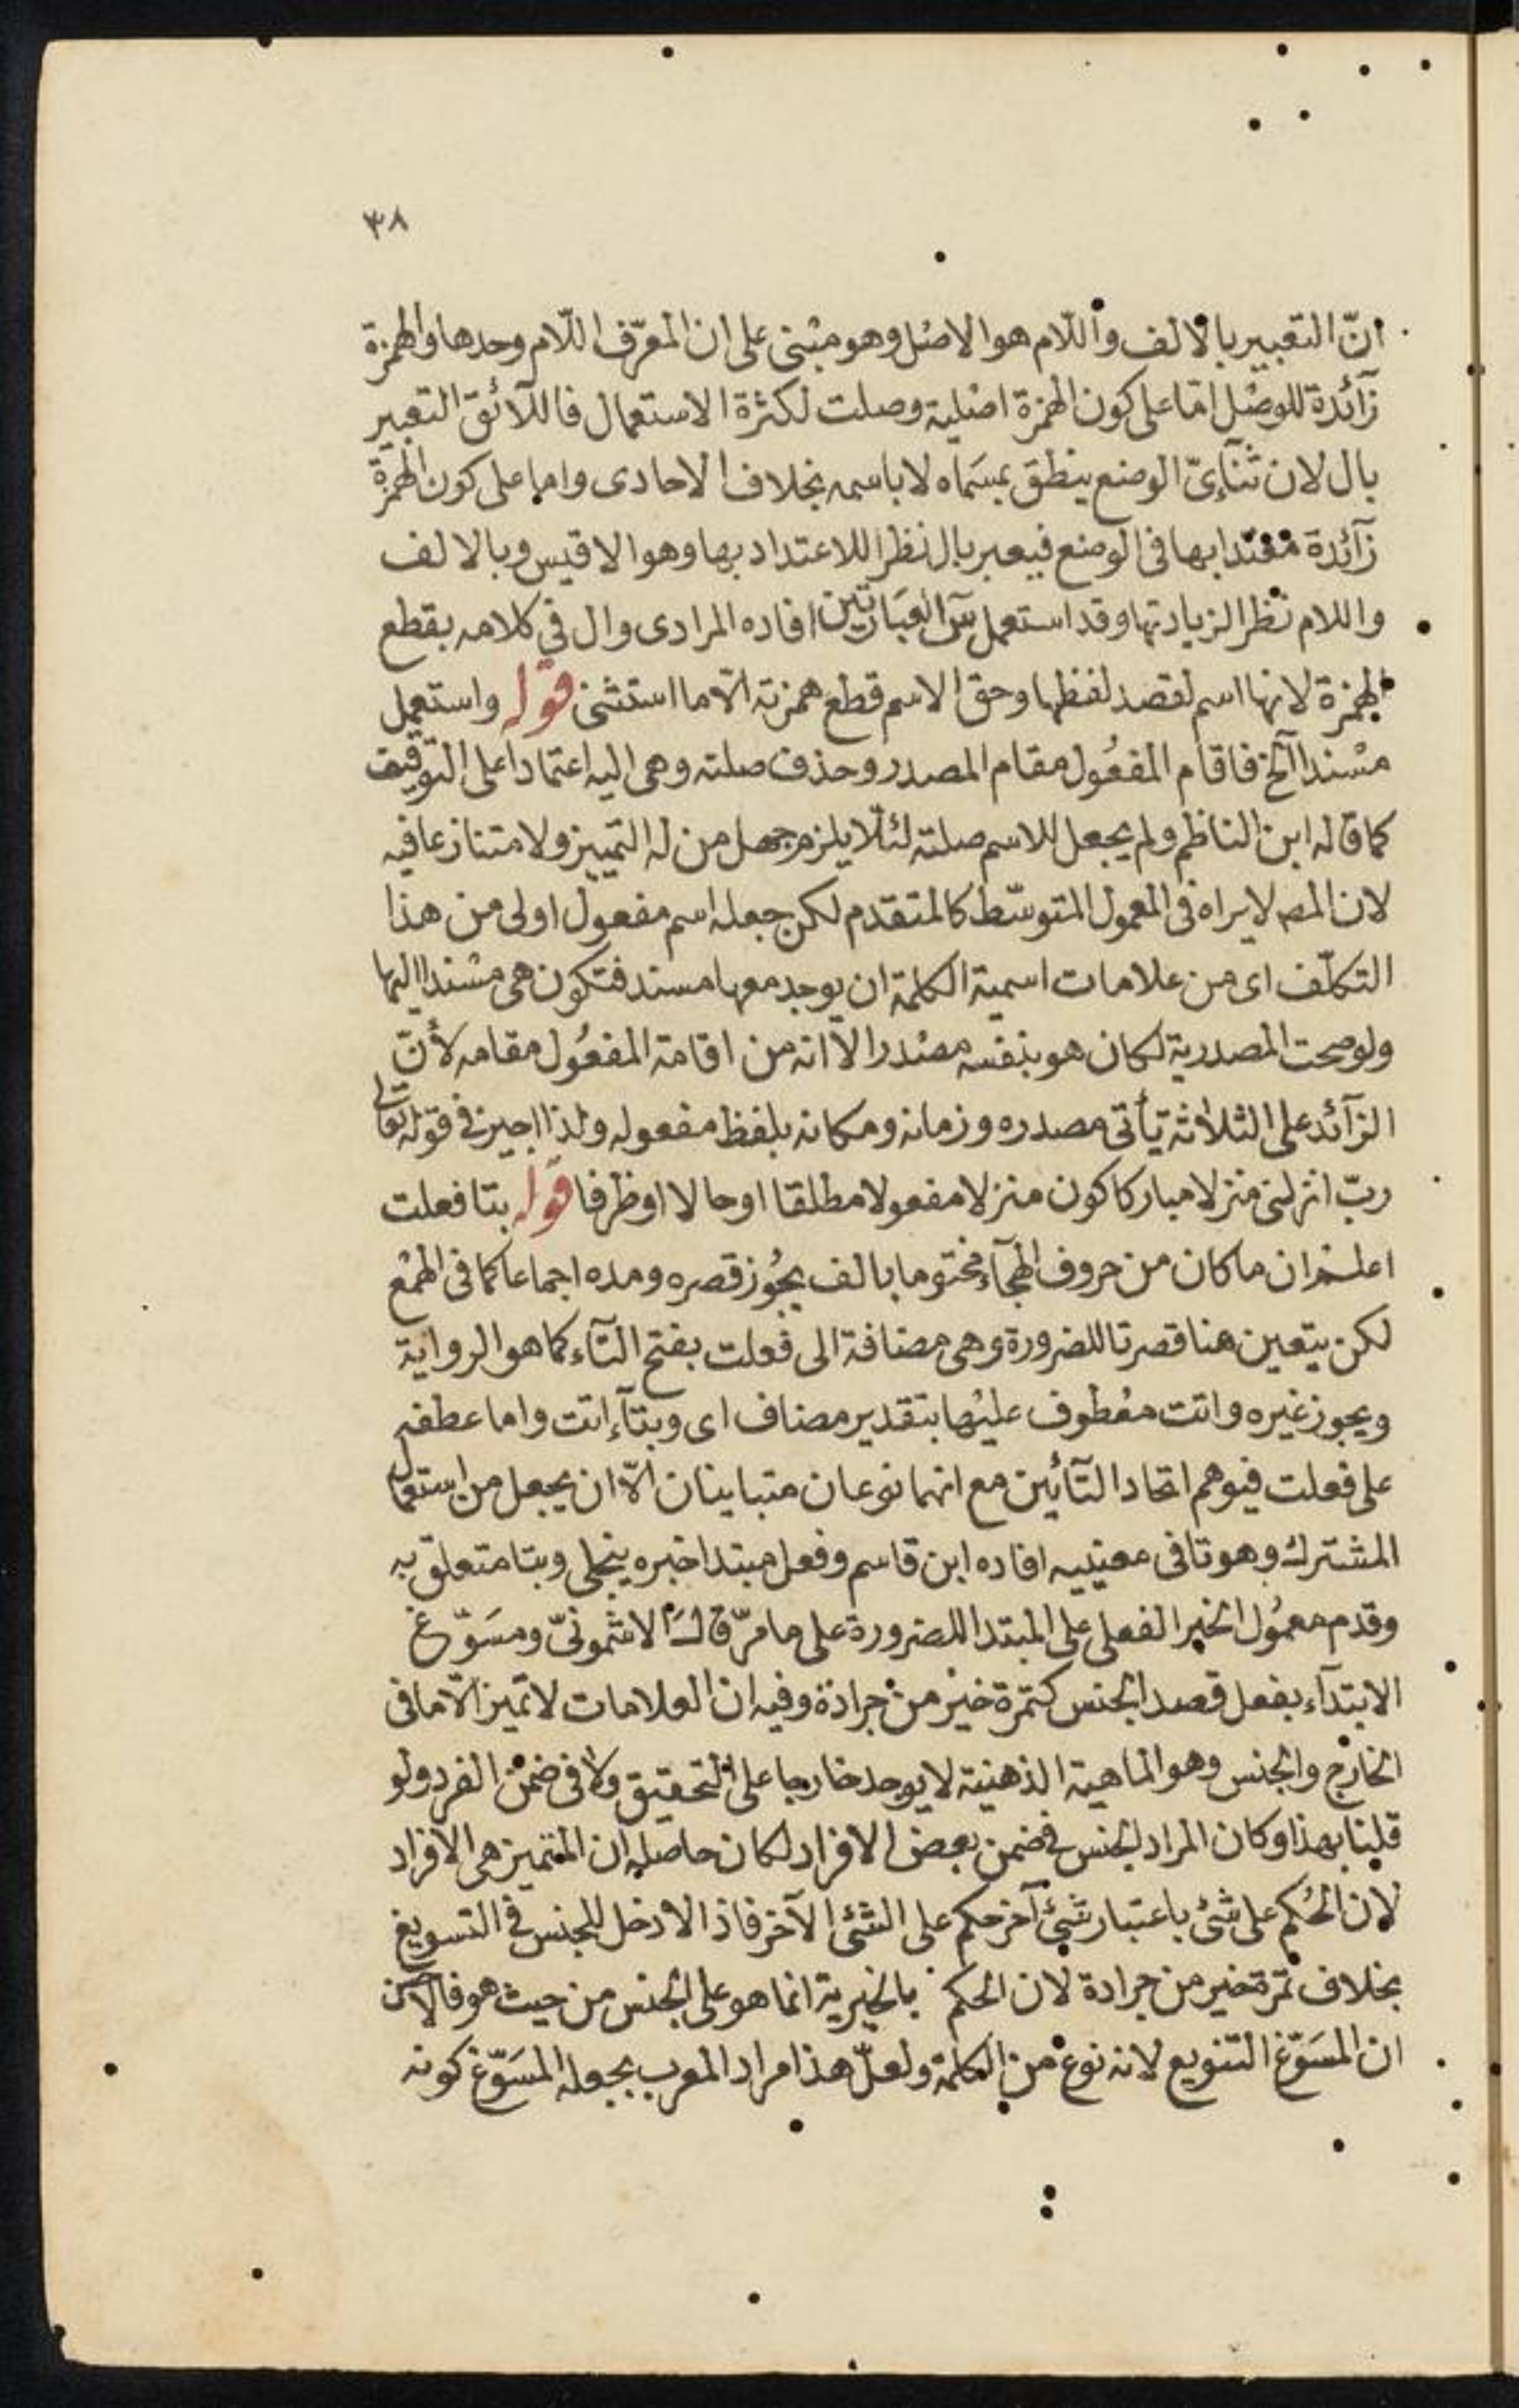 ٣٨
انّ التعبير بالالف واللام هو الاصل وهو مبنى على ان المعرّف اللّام وحدها والهمزة
زآئدة للوصل امّا على كون الهمزة اصلية وصلت لكثرة الاستعمال فاللآئق التعبير
بال لان ثنآئىّ الوضع ينطق بمسَماه لا باسمه بخلاف الاحادى واما على كون الهمزة
زآئدة معتدا بها فى الوضع فيعبر بال نظرا للاعتداد بها وهو الاقيس وبالالف
واللام نظرا لزيادتها وقد استعمل العبَارتين افاده المرادى وال فى كلامه بقطع
الهمزة لانها اسم لقصد لفظها وحق الاسم قطع همزته الّا ما استثنى قوله واستعمل
مسْندا الخ فاقام المفعُول مقام المصدر وحذف صلته وهى اليه اعتمادا على التوقيف
كما قاله ابن الناظم ولم يجعل للاسم صلته لئلّا يلزم جهل من له التمييز ولا متنازعا فيه
لان المصـ لا يراه فى المعمول المتوسّط كالمتقدم لكن جعله اسم مفعول اولى من هذا
التكلّف اى من علامات اسمية الكلمة ان يوجد معها مسند فتكون هى مسْندا اليها
ولو صحت المصدرية لكان هو بنفسه مصْدرا لا انه من اقامة المفعُول مقامه لأنّ
الزآئد على الثلاثة يأتى مصدره وزمانه ومكانه بلفظ مفعوله ولذا اجيز فى قوله تعالى
ربّ انزلنى منزلا مباركا كون منزلا مفعولا مطلقا او حالا او ظرفا قوله بتا فعلت
اعلم ان ما كان من حروف الهجآء مختوما بالف يجُوز قصره ومده اجماعا كما فى الهمْع
لكن يتعين هنا قصر تا للضرورة وهى مضافة الى فعلت بفتح التآء كما هو الرواية
ويجوز غيره واتت معْطوف عليْها بتقدير مضاف اى وبتآء اتت واما عطفه
على فعلت فيوهم اتحاد التآئين مع انهما نوعان متباينان الّا ان يجعل من استعمال
المشترك وهو تا فى معنييه افاده ابن قاسم وفعل مبتدا خبره ينجلى وبتا متعلق به
وقدم معمُول الخبر الفعلى على المبتدا للضرورة على ما مرّ قال الاشمونىّ ومسَوّغ
الابتدآء بفعل قصد الجنس كتمرة خير من جرادة وفيه ان العلامات لا تميز الّا ما فى
الخارج والجنس وهو الماهية الذهنية لا يوجد خارجا على التحقيق ولا فى ضمن الفرد ولو
قلنا بهذا وكان المراد الجنس فى ضمن بعض الافراد لكان حاصله ان المتميز هى الافراد
لان الحُكم على شئ باعتبار شئ آخر حكم على الشئ الآخر فاذا لا دخل للجنس فى التسويغ
بخلاف تمرة خير من جرادة لان الحكم بالخيرية انما هو على الجنس من حيث هو فالاحسن
ان المسَوّغ التنويع لانه نوع من الكلمة ولعلّ هذا مراد المعرب بجعله المسَوّغ كونه